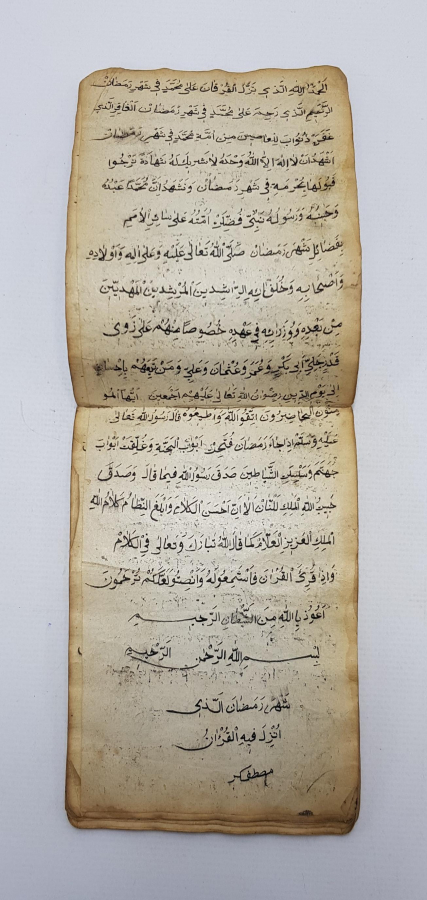 اَلْحَمْدُ لِلّٰهِ الَّذِي نَزَّلَ الْقُرْقَانَ عَلَى مُحَمَّدٍ فِي شَهْرِ رَمَضَانَ
الَّذِي رَحِمَ عَلَى مُحَمَّدٍ فِي شَهْرِ رَمَضَانَ
مِنْ اُمَّةِ مُحَمَّدٍ فِي شَهْرِ رَمَضَانَ
اَشْهَدُ اَنْ لَا اِلٰهَ اِلَّا اللّٰهُ وَحْدَهُ لَا شَرِيكَ لَهُ شَهَادَةً نَرْجُوا
قَبُولَهَا بِحُرْمَةِ فِي شَهْرِ رَمَضَانَ وَنَشْهَدُ اَنَّ مُحَمَّدًا عَبْدُهُ
وَحَبِيبُهُ وَرَسُولُهُ نَبِيٌّ فُضِّلَتْ اُمَّتُهُ عَلَى سَائِرِ الْاُمَمِ
بِفَضَائِلِ شَهْرِ رَمَضَانَ صَلَّى اللّٰهُ تَعَالَى عَلَيْهِ وَعَلَى اٰلِهِ وَاَوْلَادِهِ
وَاَصْحَابِهِ وَخُلَفَائِهِ الرَّاشِدِينَ الْمُرْشِدِينَ الْمَهْدِيِّينَ
مِنْ بَعْدِهِ وَوُزَرَائِهِ فِي عَهْدِهِ خُصُوصًا مِنْهُمْ عَلَى ذَوِي
قَدْرِ جَلِيٍّ اَبِي بَكْرٍ وَعُمَرَ وَعُثْمَانَ وَعَلِيٍّ وَمَنْ تَبِعَهُمْ بِاِحْسَانٍ
اِلَى يَوْمِ الدِّينِ رِضْوَانُ اللّٰهِ تَعَالَى عَلَيْهِمْ اَجْمَعِينَ اَيُّهَا الْمُو
مِنُونَ الْحَاضِرُونَ اتَّقُوا اللّٰهَ وَاَطِيعُوهُ قَالَ رَسُولُ اللّٰهِ تَعَالَى
عَلَيْهِ وَسَلَّمَ اِذَا جَاءَ رَمَضَانُ فُتِحَتْ اَبْوَابُ الْجَنَّةِ وَغُلِّقَتْ اَبْوَابُ
جَهَنَّمَ وَسُلْسِلَتِ الشَّيَاطِينُ صَدَقَ رَسُولُ اللّٰهِ فِيمَا قَالَ وَصَدَقَ
حَبِيبُ اللّٰهِ الْمَلِكِ الْمَنَّانِ اَلَا اِنَّ اَحْسَنَ الْكَلَامِ وَاَبْلَغَ النِّظَامِ كَلَامُ اللّٰهِ
الْمَلِكِ الْعَزِيزِ الْعَلَّامِ كَمَا قَالَ اللّٰهُ تَبَارَكَ وَتَعَالَى فِي الْكَلَامِ
وَاِذَا قُرِئَ الْقُرْاٰنُ فَاسْتَمِعُوا لَهُ وَاَنْصِتُوا لَعَلَّكُمْ تُرْحَمُونَ
اَعُوذُ بِاللّٰهِ مِنَ الشَّيْطَانِ الرَّجِيمِ
بِسْمِ اللّٰهِ الرَّحْمٰنِ الرَّحِيمِ
شَهْرُ رَمَضَانَ الَّذِي
اُنْزِلَ فِيهِ الْقُرْاٰنُ